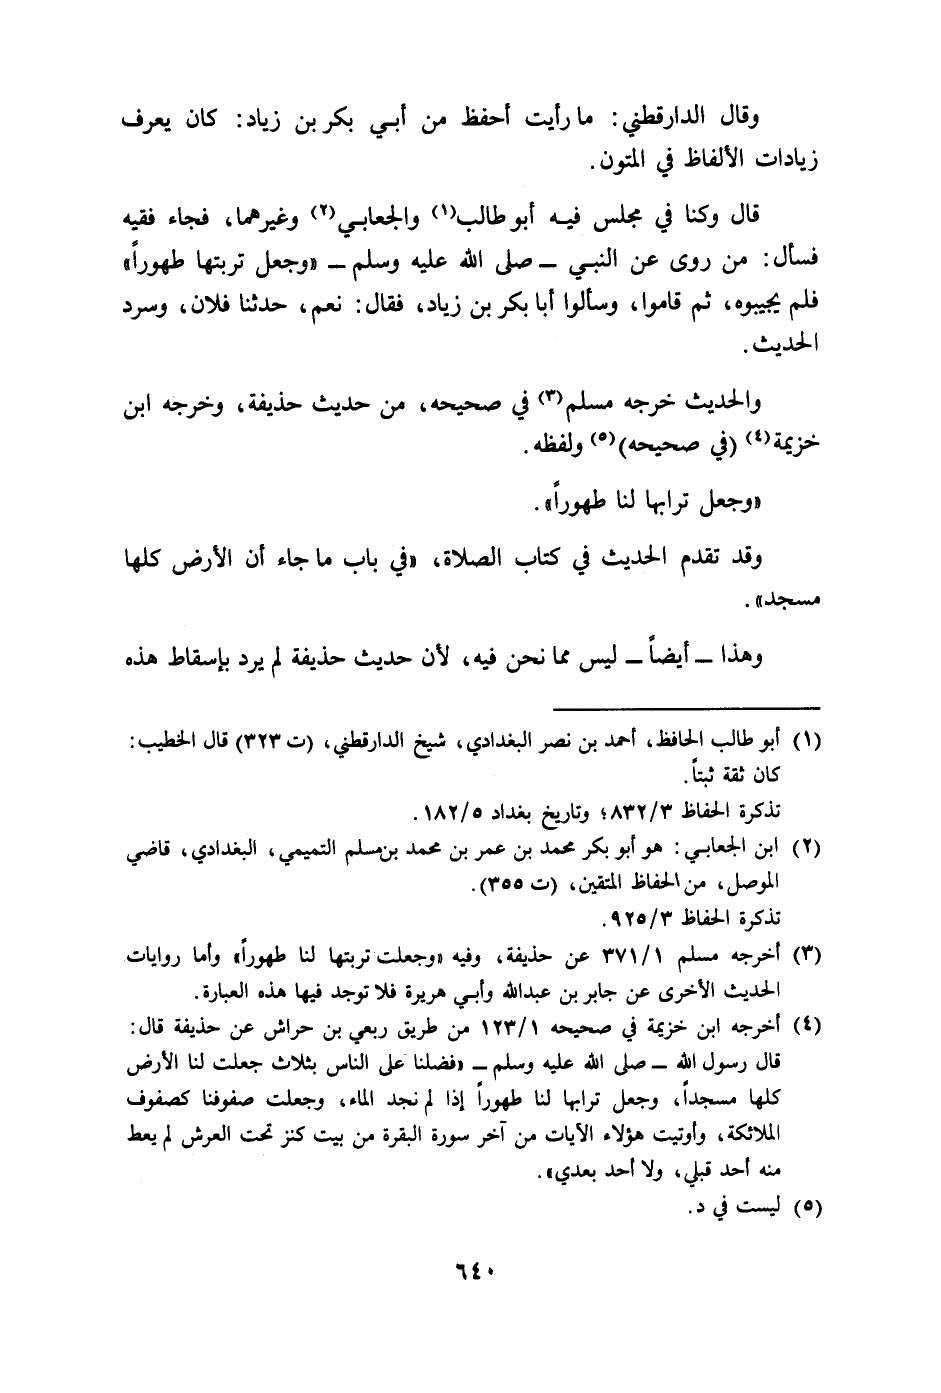 وقال الدارقطني: ما رأيت أحفظ من أبي بكر بن زياد: كان يعرف
زيادات الألفاظ في المتون.
قال وكنا في مجلس فيه أبو طالب(١) والجعابي(٢) وغيرهما، فجاء فقيه
فسأل: من روى عن النبي ــ صلى الله عليه وسلم ــ «وجعل تربتها طهوراً»
فلم يجيبوه، ثم قاموا، وسألوا أبا بكر بن زياد، فقال: نعم، حدثنا فلان، وسرد
الحديث.
والحديث خرجه مسلم(٣) في صحيحه، من حديث حذيفة، وخرجه ابن
خزيمة(٤) (في صحيحه)(٥) ولفظه.
«وجعل ترابها لنا طهوراً».
وقد تقدم الحديث في كتاب الصلاة، «في باب ما جاء أن الأرض كلها
مسجد».
وهذا ــ أيضاً ــ ليس مما نحن فيه، لأن حديث حذيفة لم يرد بإسقاط هذه
(١) أبو طالب الحافظ، أحمد بن نصر البغدادي، شيخ الدارقطني، (ت ٣٢٣) قال الخطيب:
كان ثقة ثبتاً.
تذكرة الحفاظ ٨٣٢/٣؛ وتاريخ بغداد ١٨٢/٥.
(٢) ابن الجعابي: هو أبو بكر محمد بن عمر بن محمد بن مسلم التميمي، البغدادي، قاضي
الموصل، من الحفاظ المتقين، (ت ٣٥٥).
تذكرة الحفاظ ٩٢٥/٣.
(٣) أخرجه مسلم ٣٧١/١ عن حذيفة، وفيه «وجعلت تربتها لنا طهوراً» وأما روايات
الحديث الأخرى عن جابر بن عبدالله وأبي هريرة فلا توجد فيها هذه العبارة.
(٤) أخرجه ابن خزيمة في صحيحه ١٢٣/١ من طريق ربعي بن حراش عن حذيفة قال:
قال رسول الله ــ صلى الله عليه وسلم ــ «فضلنا على الناس بثلاث جعلت لنا الأرض
كلها مسجداً، وجعل ترابها لنا طهوراً إذا لم نجد الماء، وجعلت صفوفنا كصفوف
الملائكة، وأوتيت هؤلاء الآيات من آخر سورة البقرة من بيت كنز تحت العرش لم يعط
منه أحد قبلي، ولا أحد بعدي».
(٥) ليست في د.
٦٤٠